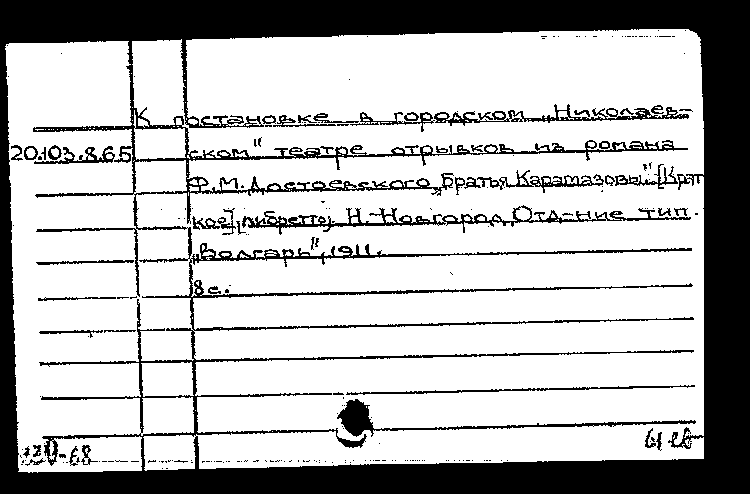 К постановке в городском „Николаев-
20.103.8.65 ском" театре отрывков из романа
Ф.М.Достоевского „Братья Карамазовы". [Крат
кое] либретто, Н.-Новгород, Отд-ние тип.
„Волгарь", 1911.
8 с.
-68